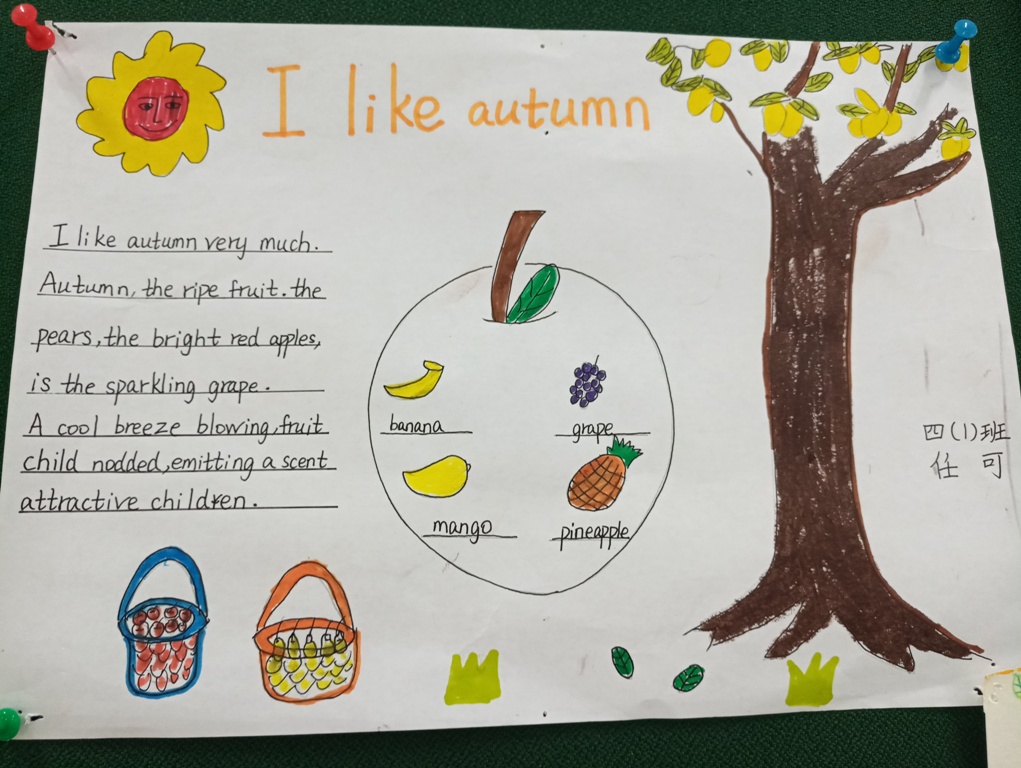 I like autumn
I like autumn very much.
Autumn, the ripe fruit. the
pears, the bright red apples,
is the sparkling grape.
A cool breeze blowing, fruit
child nodded, emitting a scent
attractive children.
banana
grape
mango
pineapple
四(1)班
任可